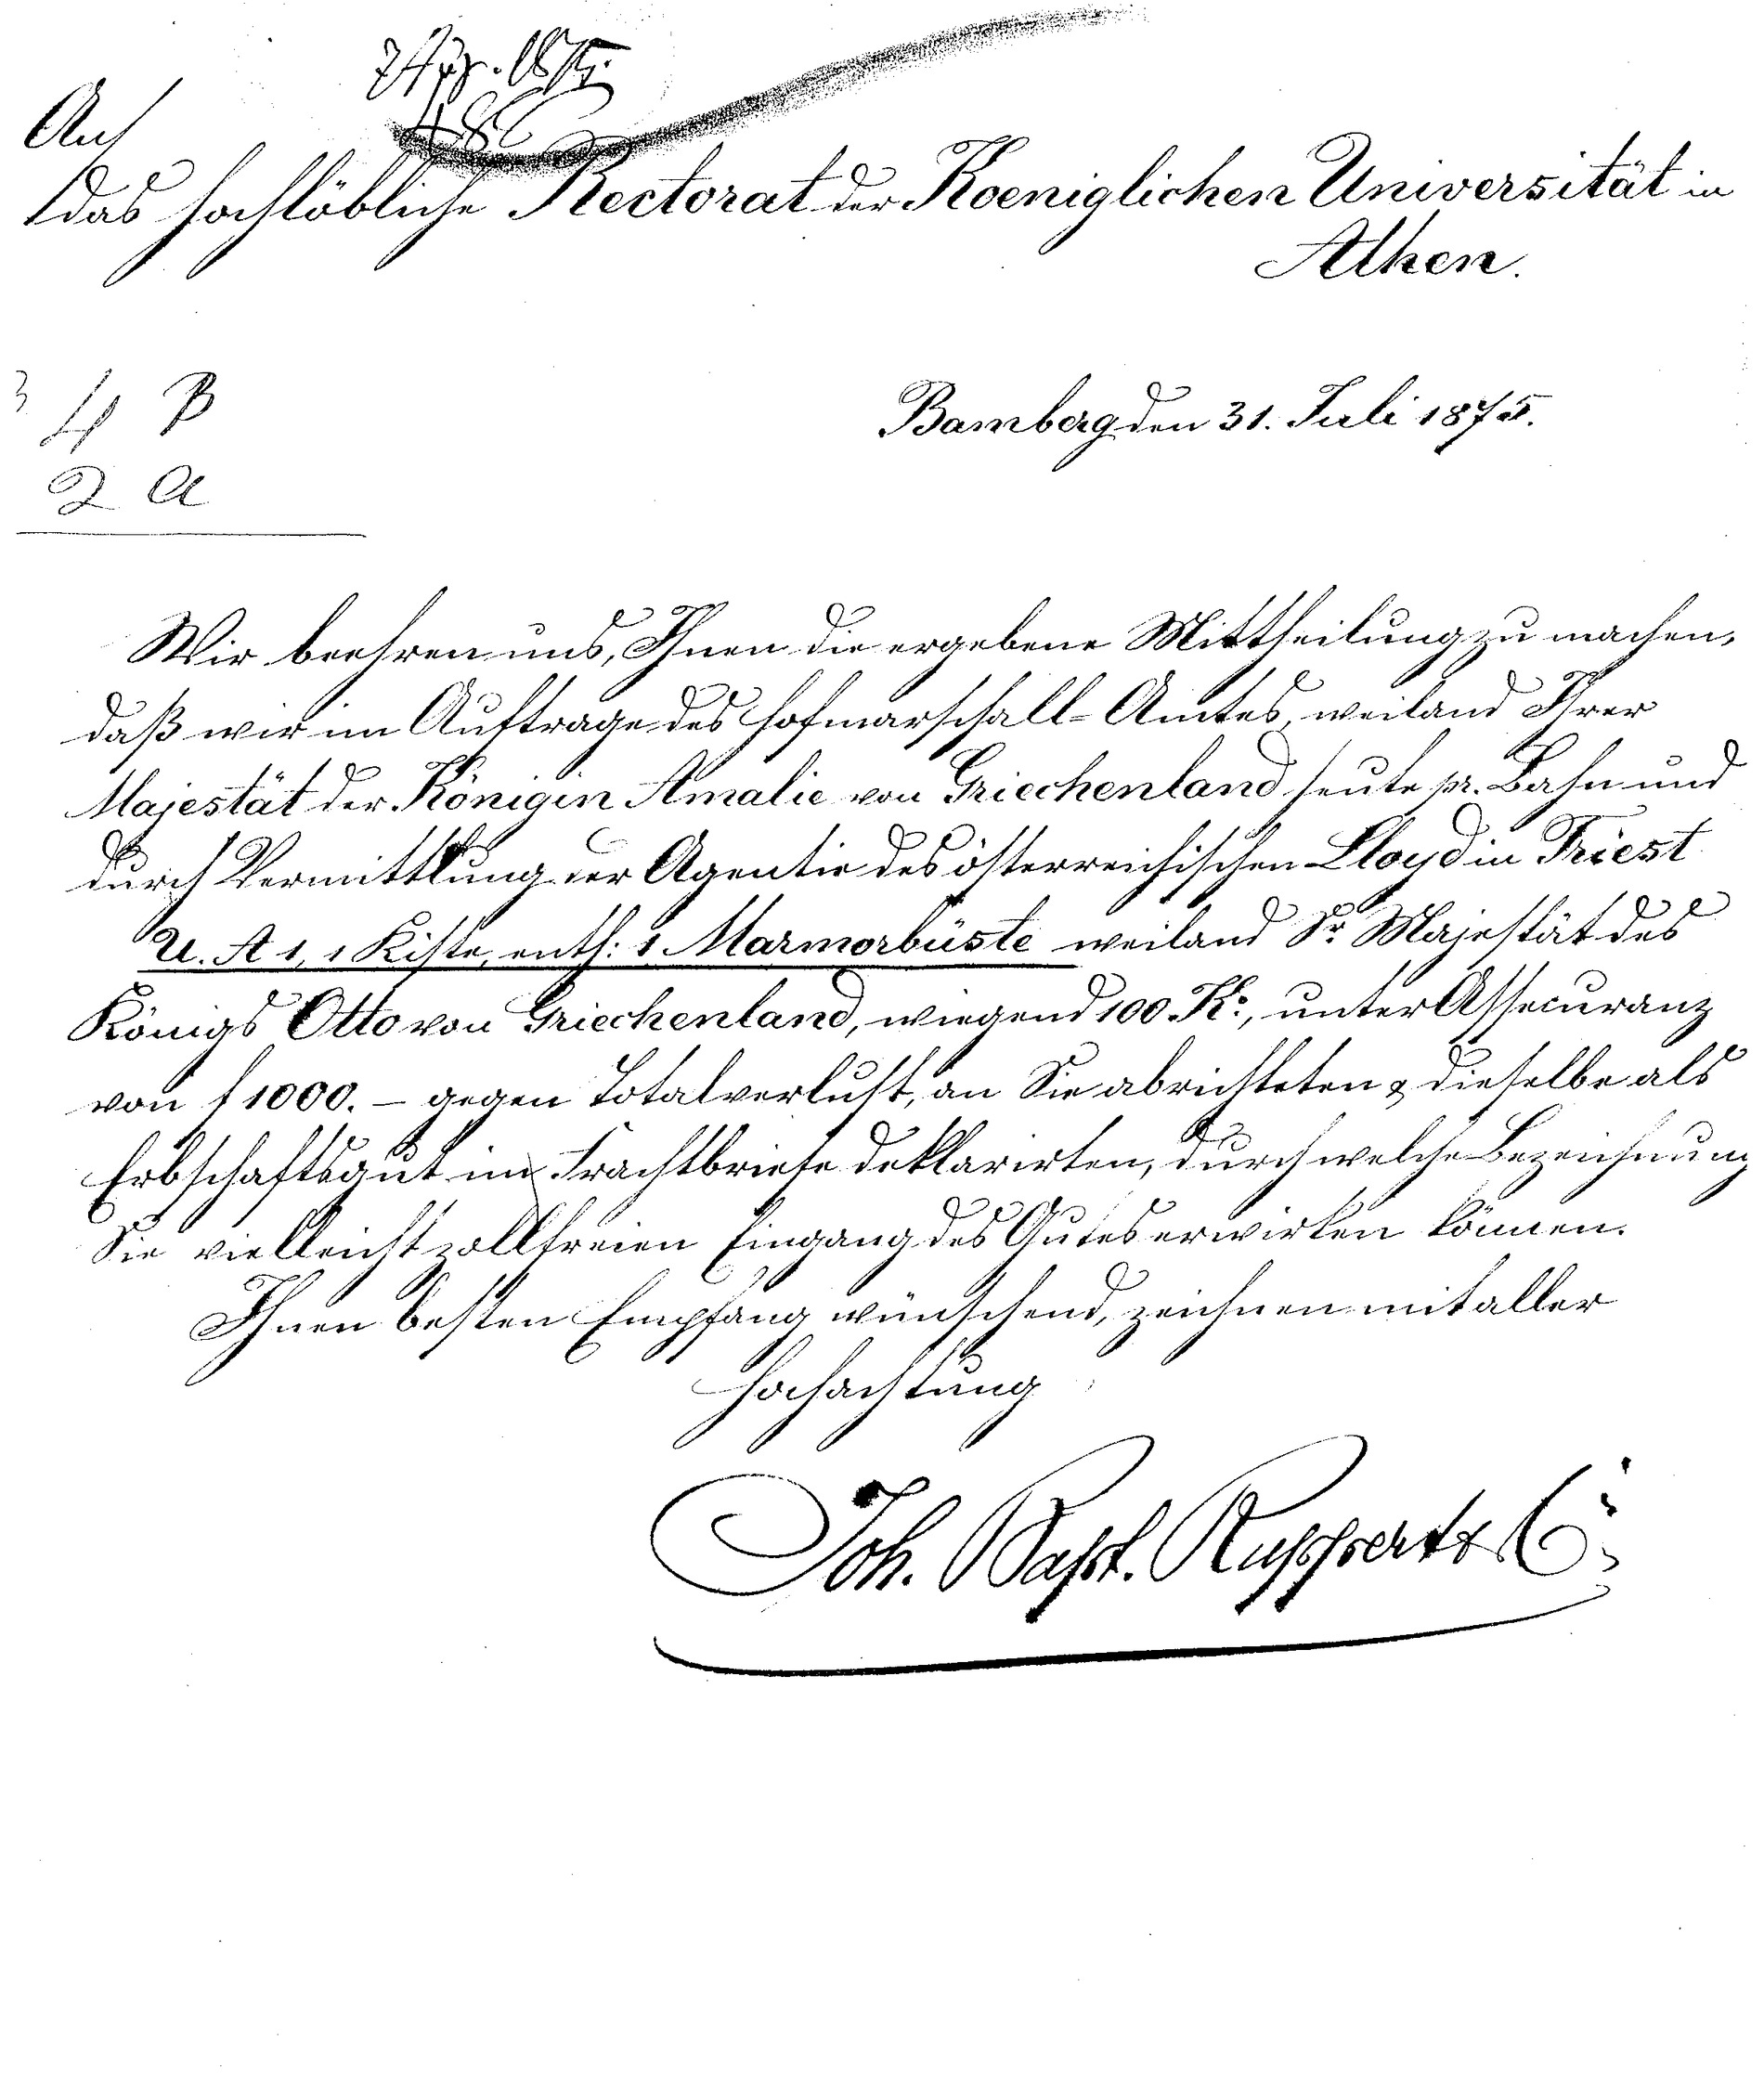 An
das hochlöbliche Rectorat der Koeniglichen Universität in
Athen.
4 B
2 a
Bamberg den 31. Juli 1875.
Wir beehren uns, Ihnen die ergebene Mittheilung zu machen,
daß wir im Auftrage des Hofmarschall-Amtes, weiland Ihrer
Majestät der Königin Amalie von Griechenland heute pr. Bahn und
durch Vermittlung der Agentie des österreichischen Lloyd in Triest
U. A 1, 1 Kiste, enth: 1 Marmorbüste weiland Sr. Majestät des
Königs Otto von Griechenland, wiegend 100 Ko, unter Assecuranz
von f 1000. – gegen Totalverlust, an Sie abrichteten & dieselbe als
Erbschaftsgut im Frachtbriefe deklarirten, durch welche Bezeichnung
Sie vielleicht zollfreien Eingang des Gutes erwirken können.
Ihnen besten Empfang wünschend, zeichnen mit aller
Hochachtung
Joh. Bapt. Ruppert & Co.